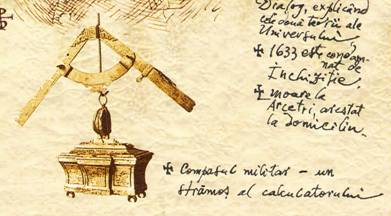 Dialog, explicând
cele două teorii ale
Universului
✠ 1633 este condam-
nat de
Inchiziție,
✠ moare la
Arcetri, arestat
la domiciliu.
✠ Compasul militar – un
strămoș al calculatorului